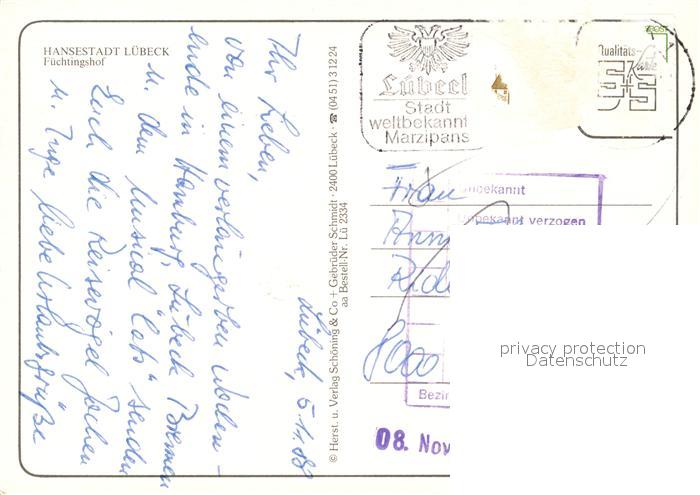 HANSESTADT LÜBECK
Füchtingshof
Lübeck, 5.11.88
Ihr Lieben,
von einem verlängerten Wochen-
ende in Hamburg, Lübeck Bremen
u. dem Musical "Cats" senden
Euch die Reisevögel Jochen
u. Inge liebe Urlaubsgrüße
© Herst. u. Verlag Schöning & Co + Gebrüder Schmidt · 2400 Lübeck · ☎ (04 51) 3 12 24
aa Bestell-Nr. Lü 2334
Lübeck
Stadt
weltbekannt
Marzipans
Qualitäts-
Karte
Frau
8000
unbekannt
Unbekannt verzogen
Bezir
08. Nov
privacy protection
Datenschutz